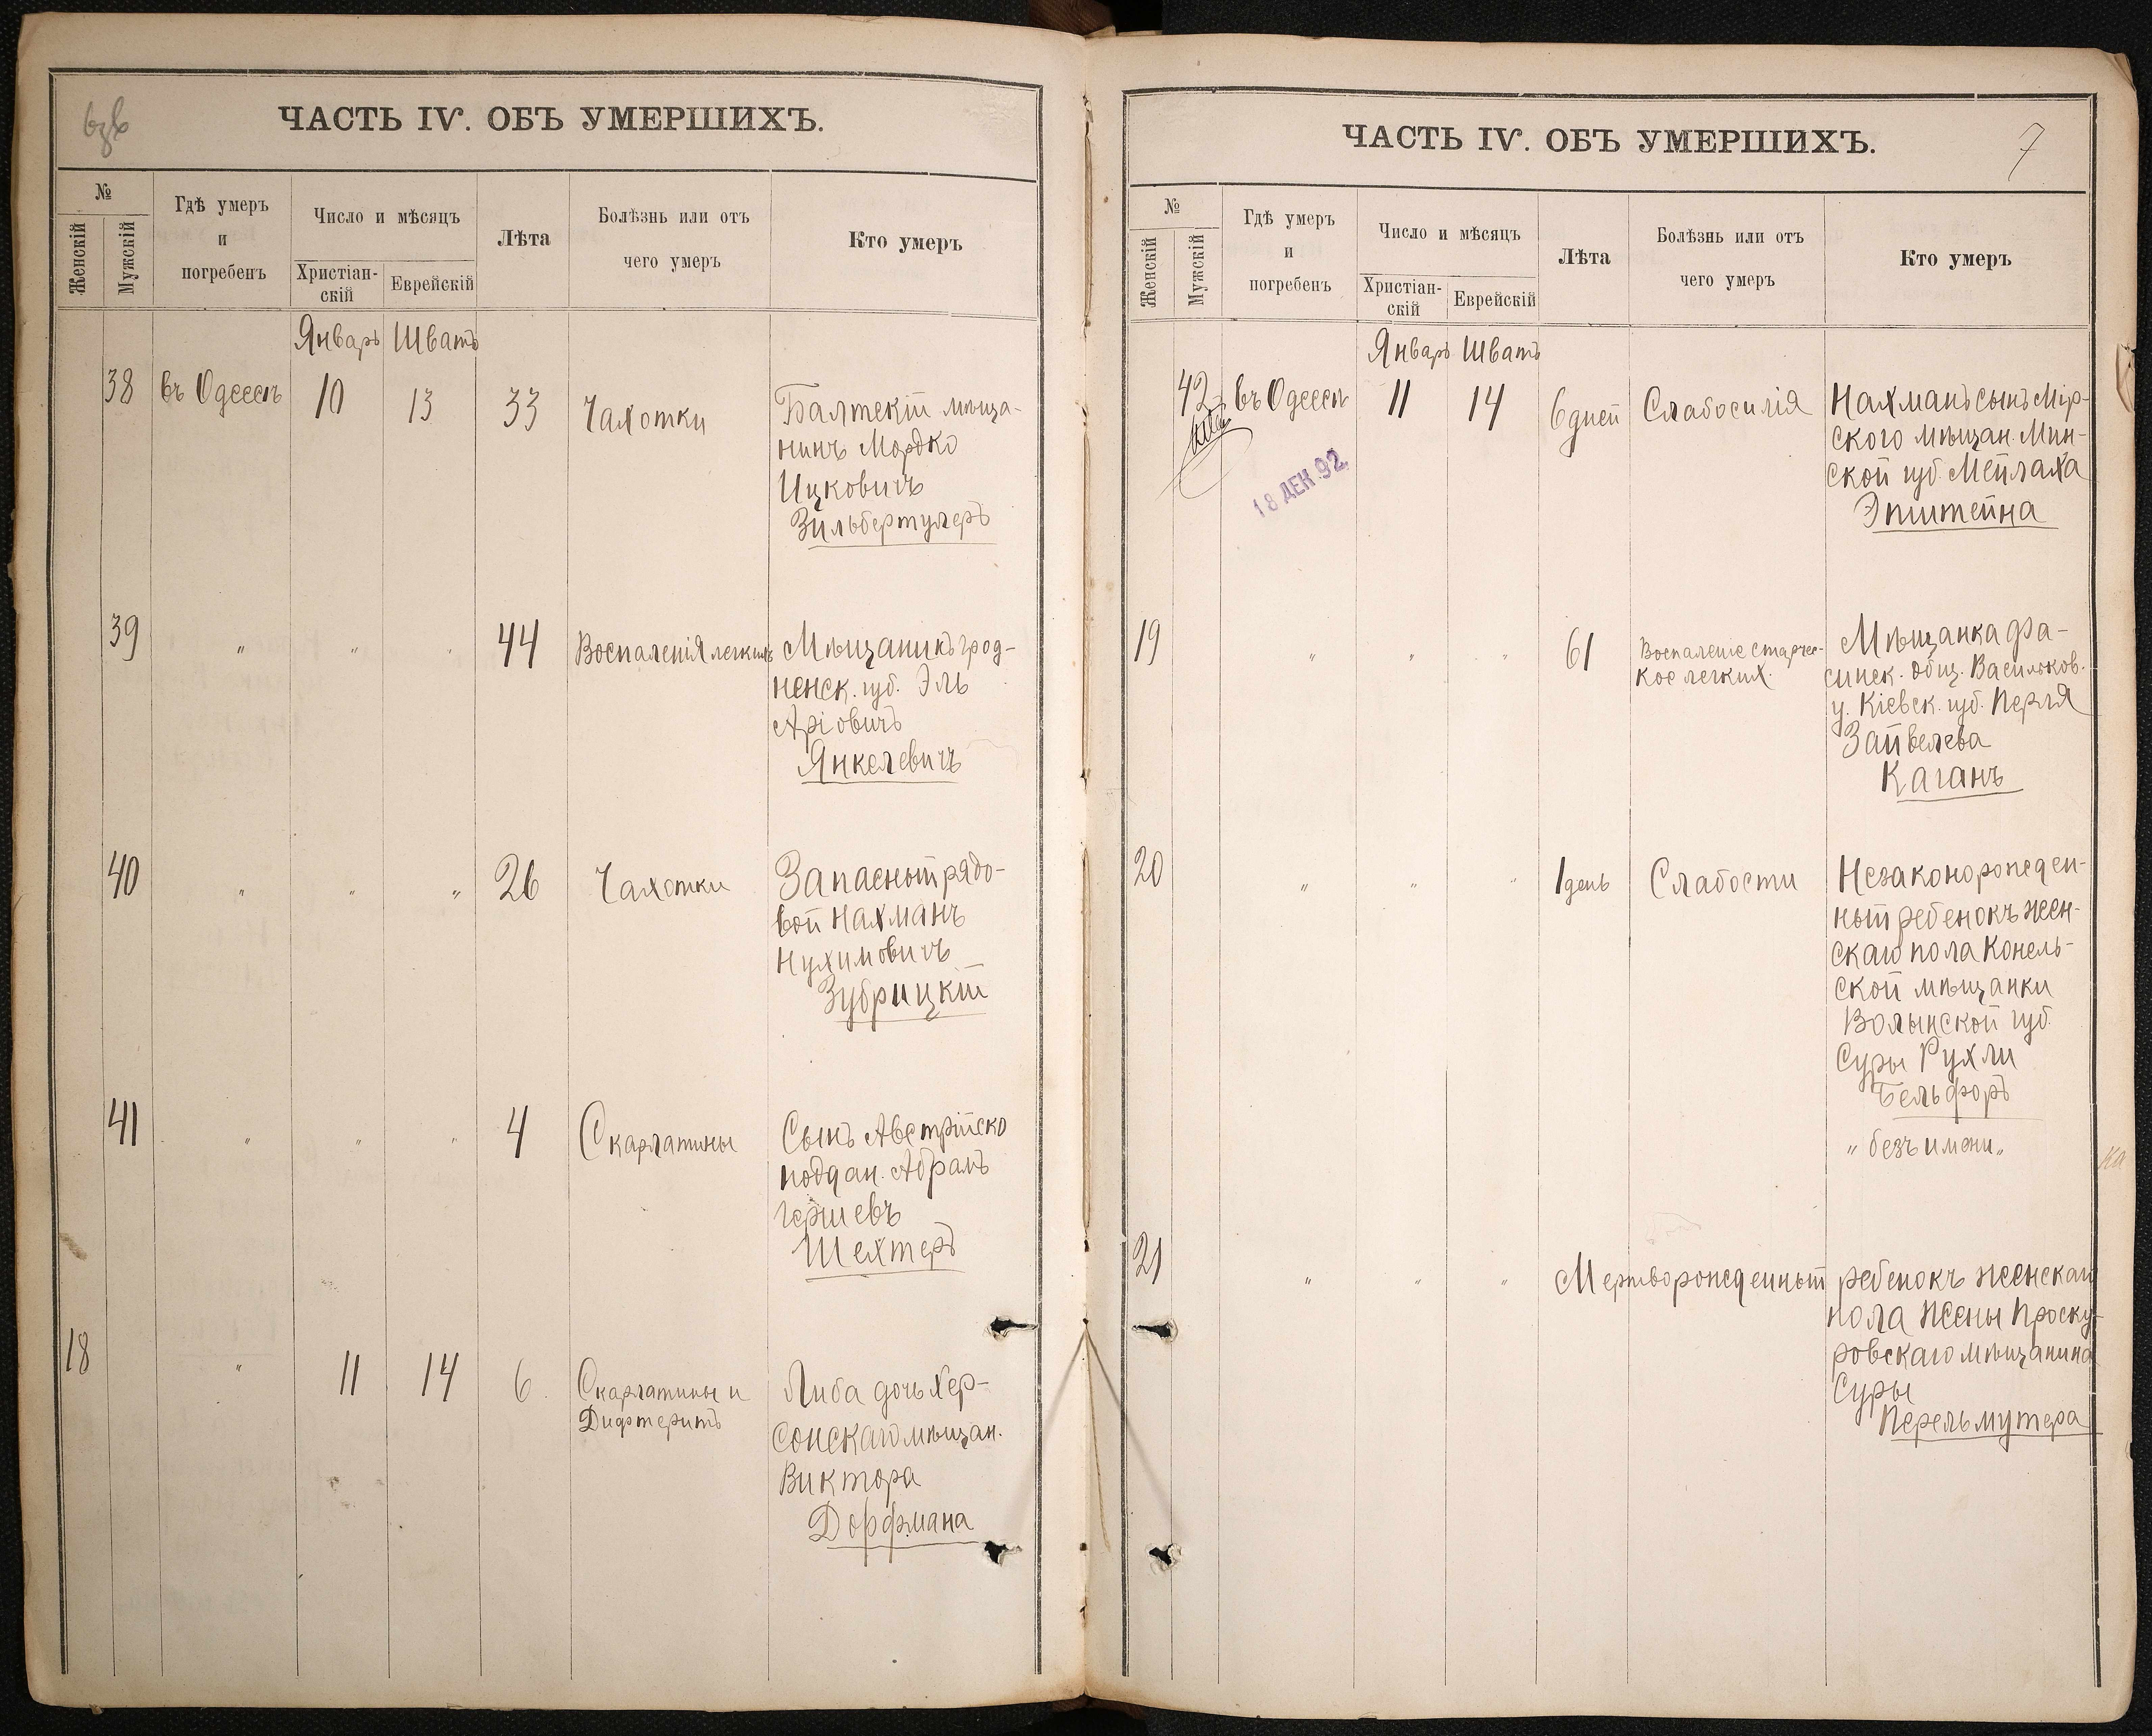 ЧАСТЬ IV. ОБЪ УМЕРШИХЪ.
№
Женскій
Мужскій
Гдѣ умеръ
и
погребенъ
Число и мѣсяцъ
Христіан-
скій
Еврейскій
Лѣта
Болѣзнь или отъ
чего умеръ
Кто умеръ
Январь Шватъ
38 въ Одессѣ 10 13 33 Чахотки Балтскій мѣща-
нинъ Мордко
Ицковичъ
Зильбертулеръ
39 " " " 44 Воспаленія легкихъ Мѣщанинъ грод-
ненск. губ. Эль
Аріовичъ
Янкелевичъ
40 " " " 26 Чахотки Запасный рядо-
вой Нахманъ
Нухимовичъ
Зубрицкій
41 " " " 4 Скарлатины Сынъ Австрійско
поддан. Абрамъ
Гершевъ
Шехтеръ
18 " 11 14 6 Скарлатины и
Дифтеритъ
Либа дочь Хер-
сонскаго мѣщан.
Виктора
Дорфмана
ЧАСТЬ IV. ОБЪ УМЕРШИХЪ.
7
№
Женскій
Мужскій
Гдѣ умеръ
и
погребенъ
Число и мѣсяцъ
Христіан-
скій
Еврейскій
Лѣта
Болѣзнь или отъ
чего умеръ
Кто умеръ
Январь Шватъ
42 въ Одессѣ 11 14 6 дней Слабосилія Нахманъ сынъ Мір-
ского мѣщан. Мин-
ской губ. Мейлаха
Эпштейна
18 ДЕК. 92.
19 " " " 61 Воспаленіе старчес-
кое легких.
Мѣщанка Фа-
синск. общ. Васильков.
у. Кіевск. губ. Перля
Зайвелева
Каганъ
20 " " " 1 день Слабости Незаконорожден-
ный ребенокъ жен-
скаго пола Конель-
ской мѣщанки
Волынской губ.
Суры Рухли
Бельфоръ
" безъ имени "
21 " " " Мертворожденный ребенокъ женскаго
пола жены Проску-
ровскаго мѣщанина
Суры
Перельмутера